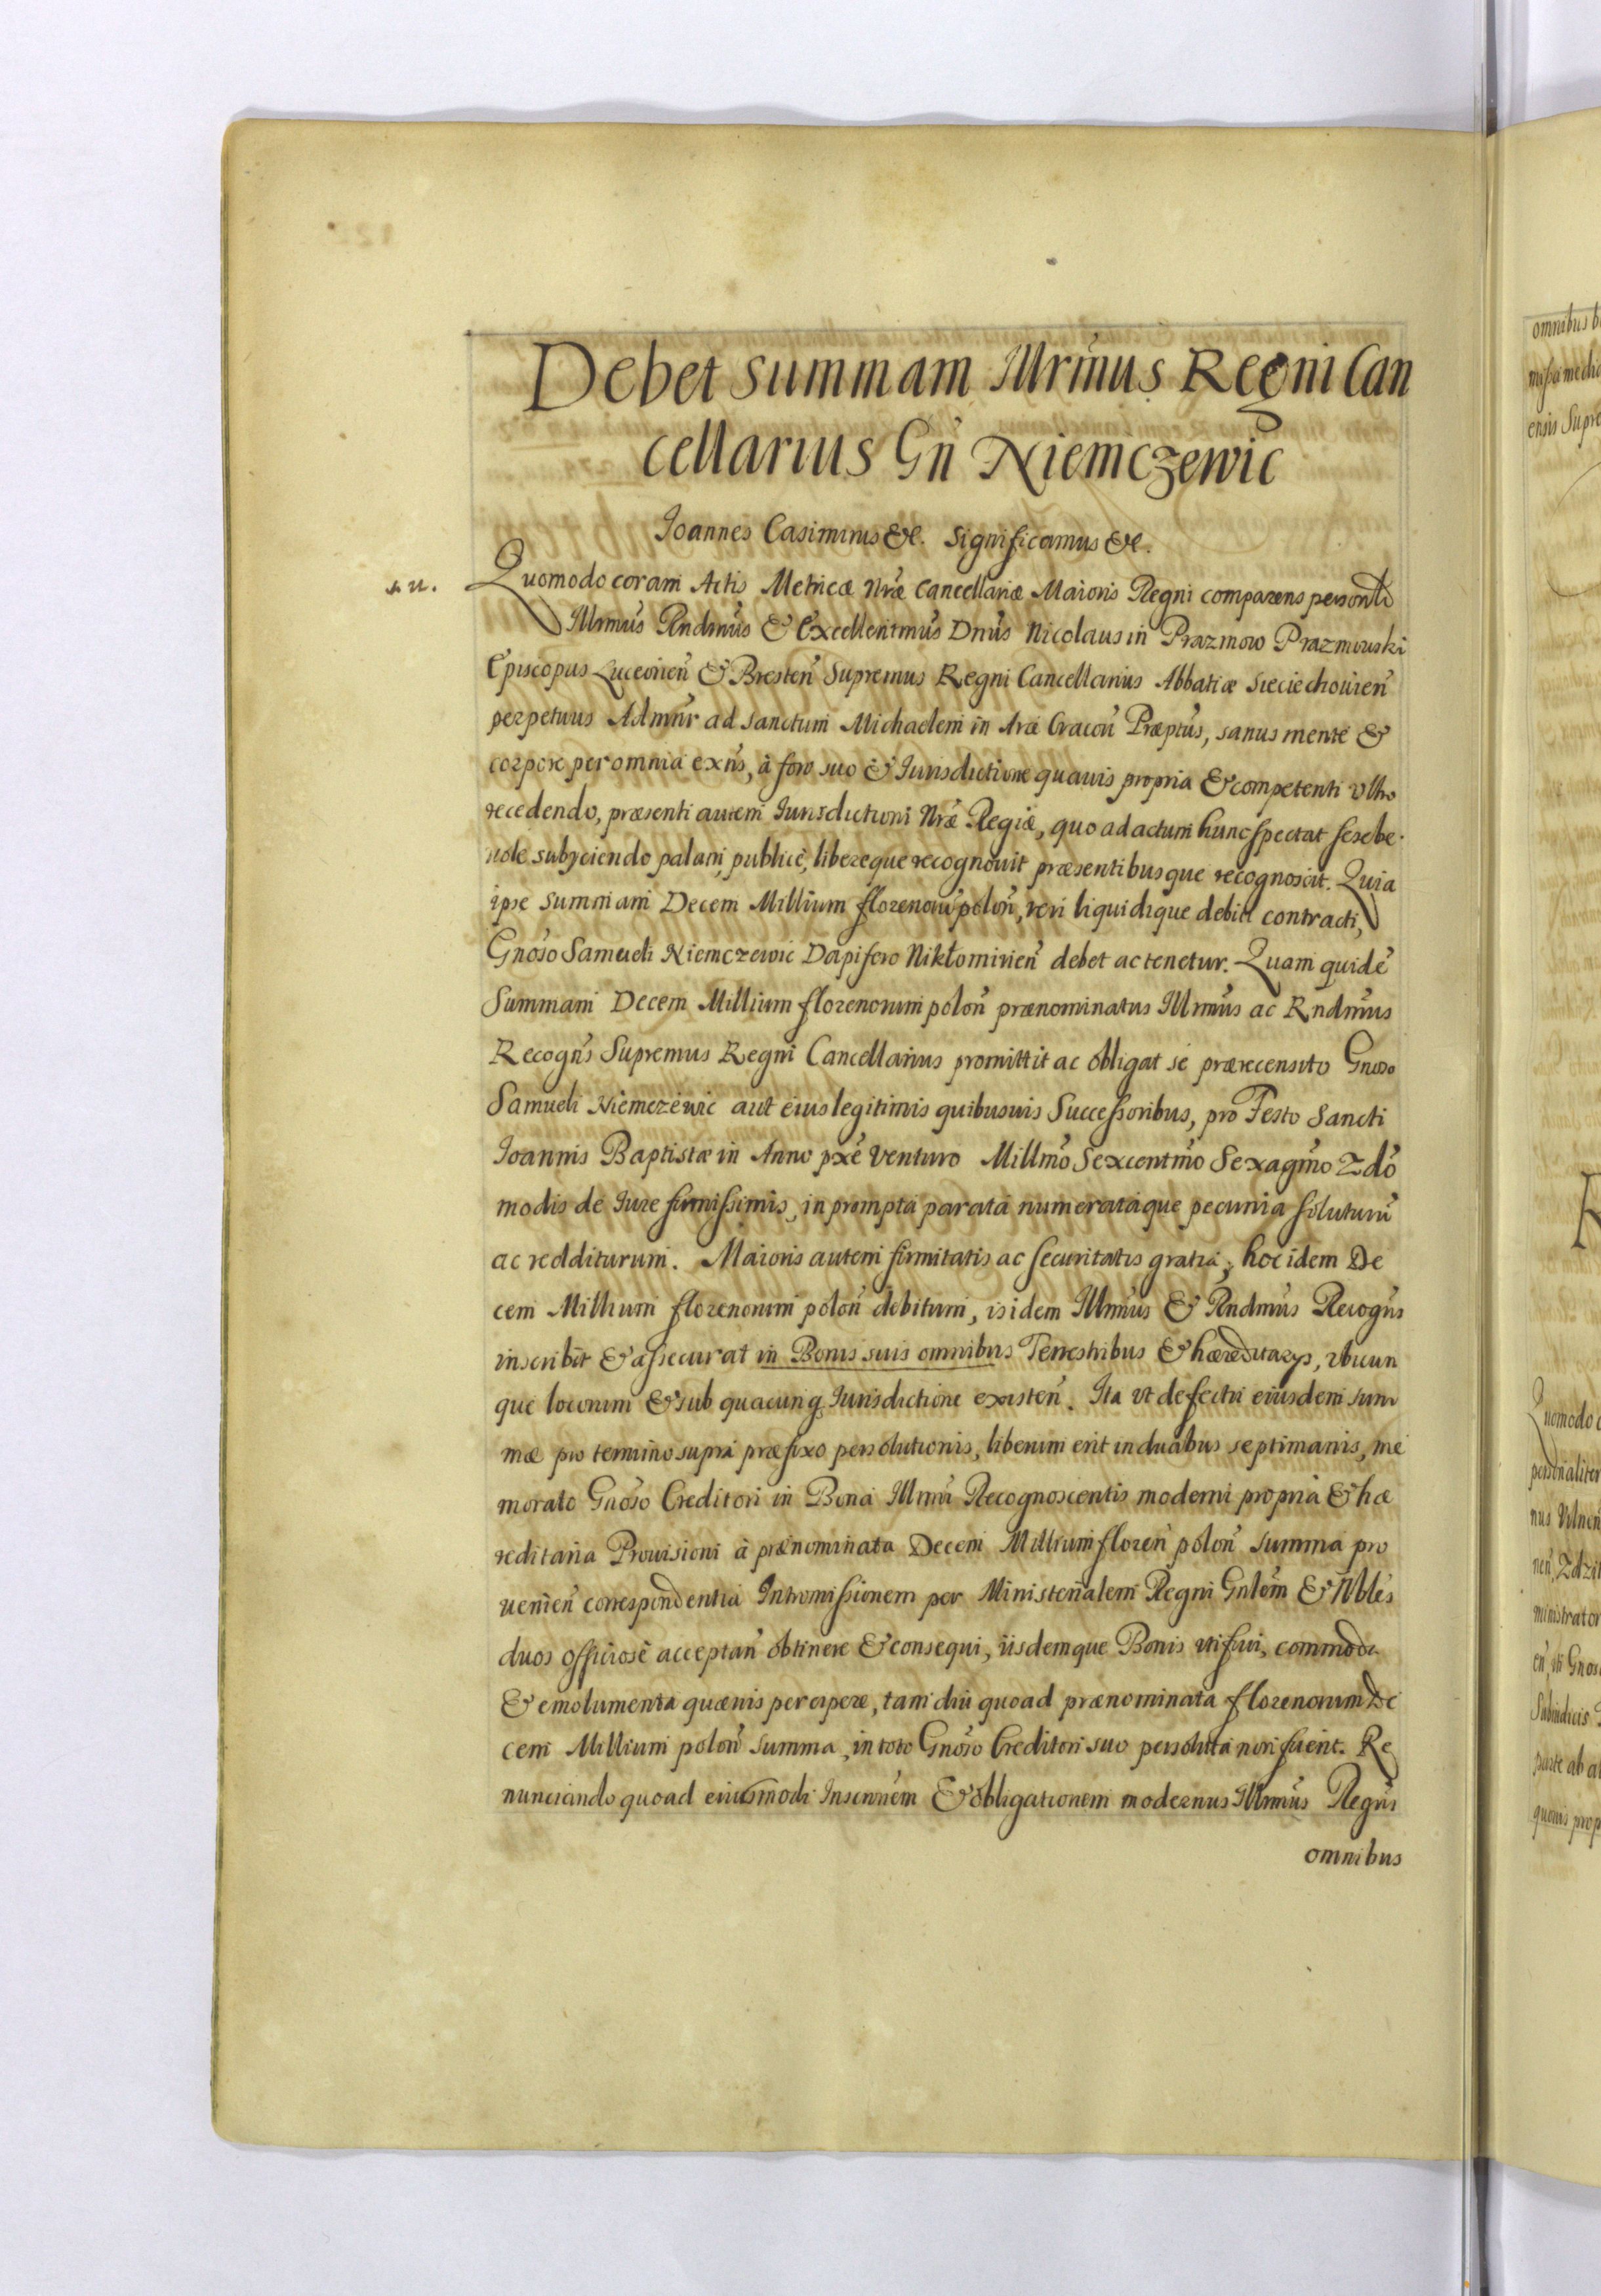 Debet summam Illrmus Regni Can
cellarius Gn̄ Niemczewic
Ioannes Casimirus &c. Significamus &c.
Quomodo coram Actis Metricæ Nr̃æ Cancellariæ Maioris Regni comparens personl̃r
Illr̃mus Rndm̃us & Excellentm̃us Dn̄us Nicolaus in Prazmow Prazmowski
Episcopus Luceorien̄ & Bresten̄ Supremus Regni Cancellarius Abbatiæ Sieciechouien̄
perpetuus Admnr̃ ad Sanctum Michaelem in Arce Cracou̅ Præptus̃, sanus mente &
corpore per omnia exn̄s, à foro suo & Iurisdictione quauis propria & competenti vltro
recedendo, præsenti autem Iurisdictioni Nr̃æ Regiæ, quo ad actum hunc spectat sese be
nole subÿciendo palam, publicè, liberèque recognouit præsentibusque recognoscit. Quia
ipse Summam Decem Millium florenorũ polon̄, veri liquidique debiti contracti,
Gnoso Samueli Niemczewic Dapifero Niktomirien̄ debet ac tenetur. Quam quidẽ
Summam Decem Millium florenorum polon̄ prænominatus Illrmus̃ ac Rndmus̃
Recogns̃ Supremus Regni Cancellarius promittit ac obligat se prærecensito Gnoso
Samueli Niemczewic aut eius legitimis quibusuis Successoribus, pro Festo Sancti
Ioannis Baptistæ in Anno pxẽ venturo Millmõ Sexcentmõ Sexagmõ 2dõ
modis de Iure firmissimis, in prompta parata numerataque pecunia soluturũ
ac redditurum. Maioris autem firmitatis ac securitatis gratia, hoc idem De
cem Millium florenorum polon̄ debitum, is idem Illmus̃ & Rndmus̃ Recogns̃
inscribit & assecurat in Bonis suis omnibus Terrestribus & hæreditarÿs, vbicun
que locorum & sub quacunq̨ Iurisdictione existen̄. Ita vt defectu eiusdem sum
mæ pro termino supra præfixo persolutionis, liberum erit in duabus septimanis, me
morato Gnoso Creditori in Bona Illmi Recognoscentis moderni propria & hæ
reditaria Prouisioni à prænominata Decem Millium floren̄ polon̄ Summa pro
uenien̄ correspondentia Intromissionem per Ministerialem Regni Gnlem̃ & Nbles̃
duos officiosè acceptan̄ obtinere & consequi, iisdemque Bonis uti frui, commoda
& emolumenta quæuis percipere, tam diù quoad prænominata florenorum De
cem Millium polon̄ summa, in toto Gnoso Creditori suo persoluta non fuerit. Re
nunciando quoad eiusmodi Inscr̃nem & obligationem modernus Illmus̃ Regns̃
omnibus